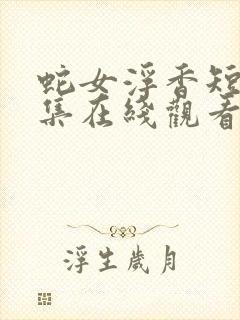 蛇女浮香短
集在綫觀看
浮生歲月